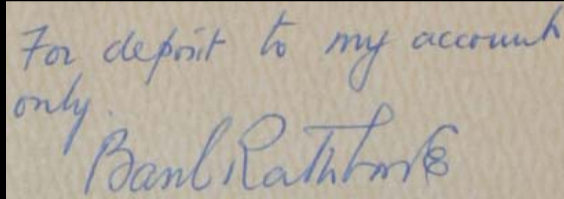 For deposit to my account
only.
Basil Rathbone